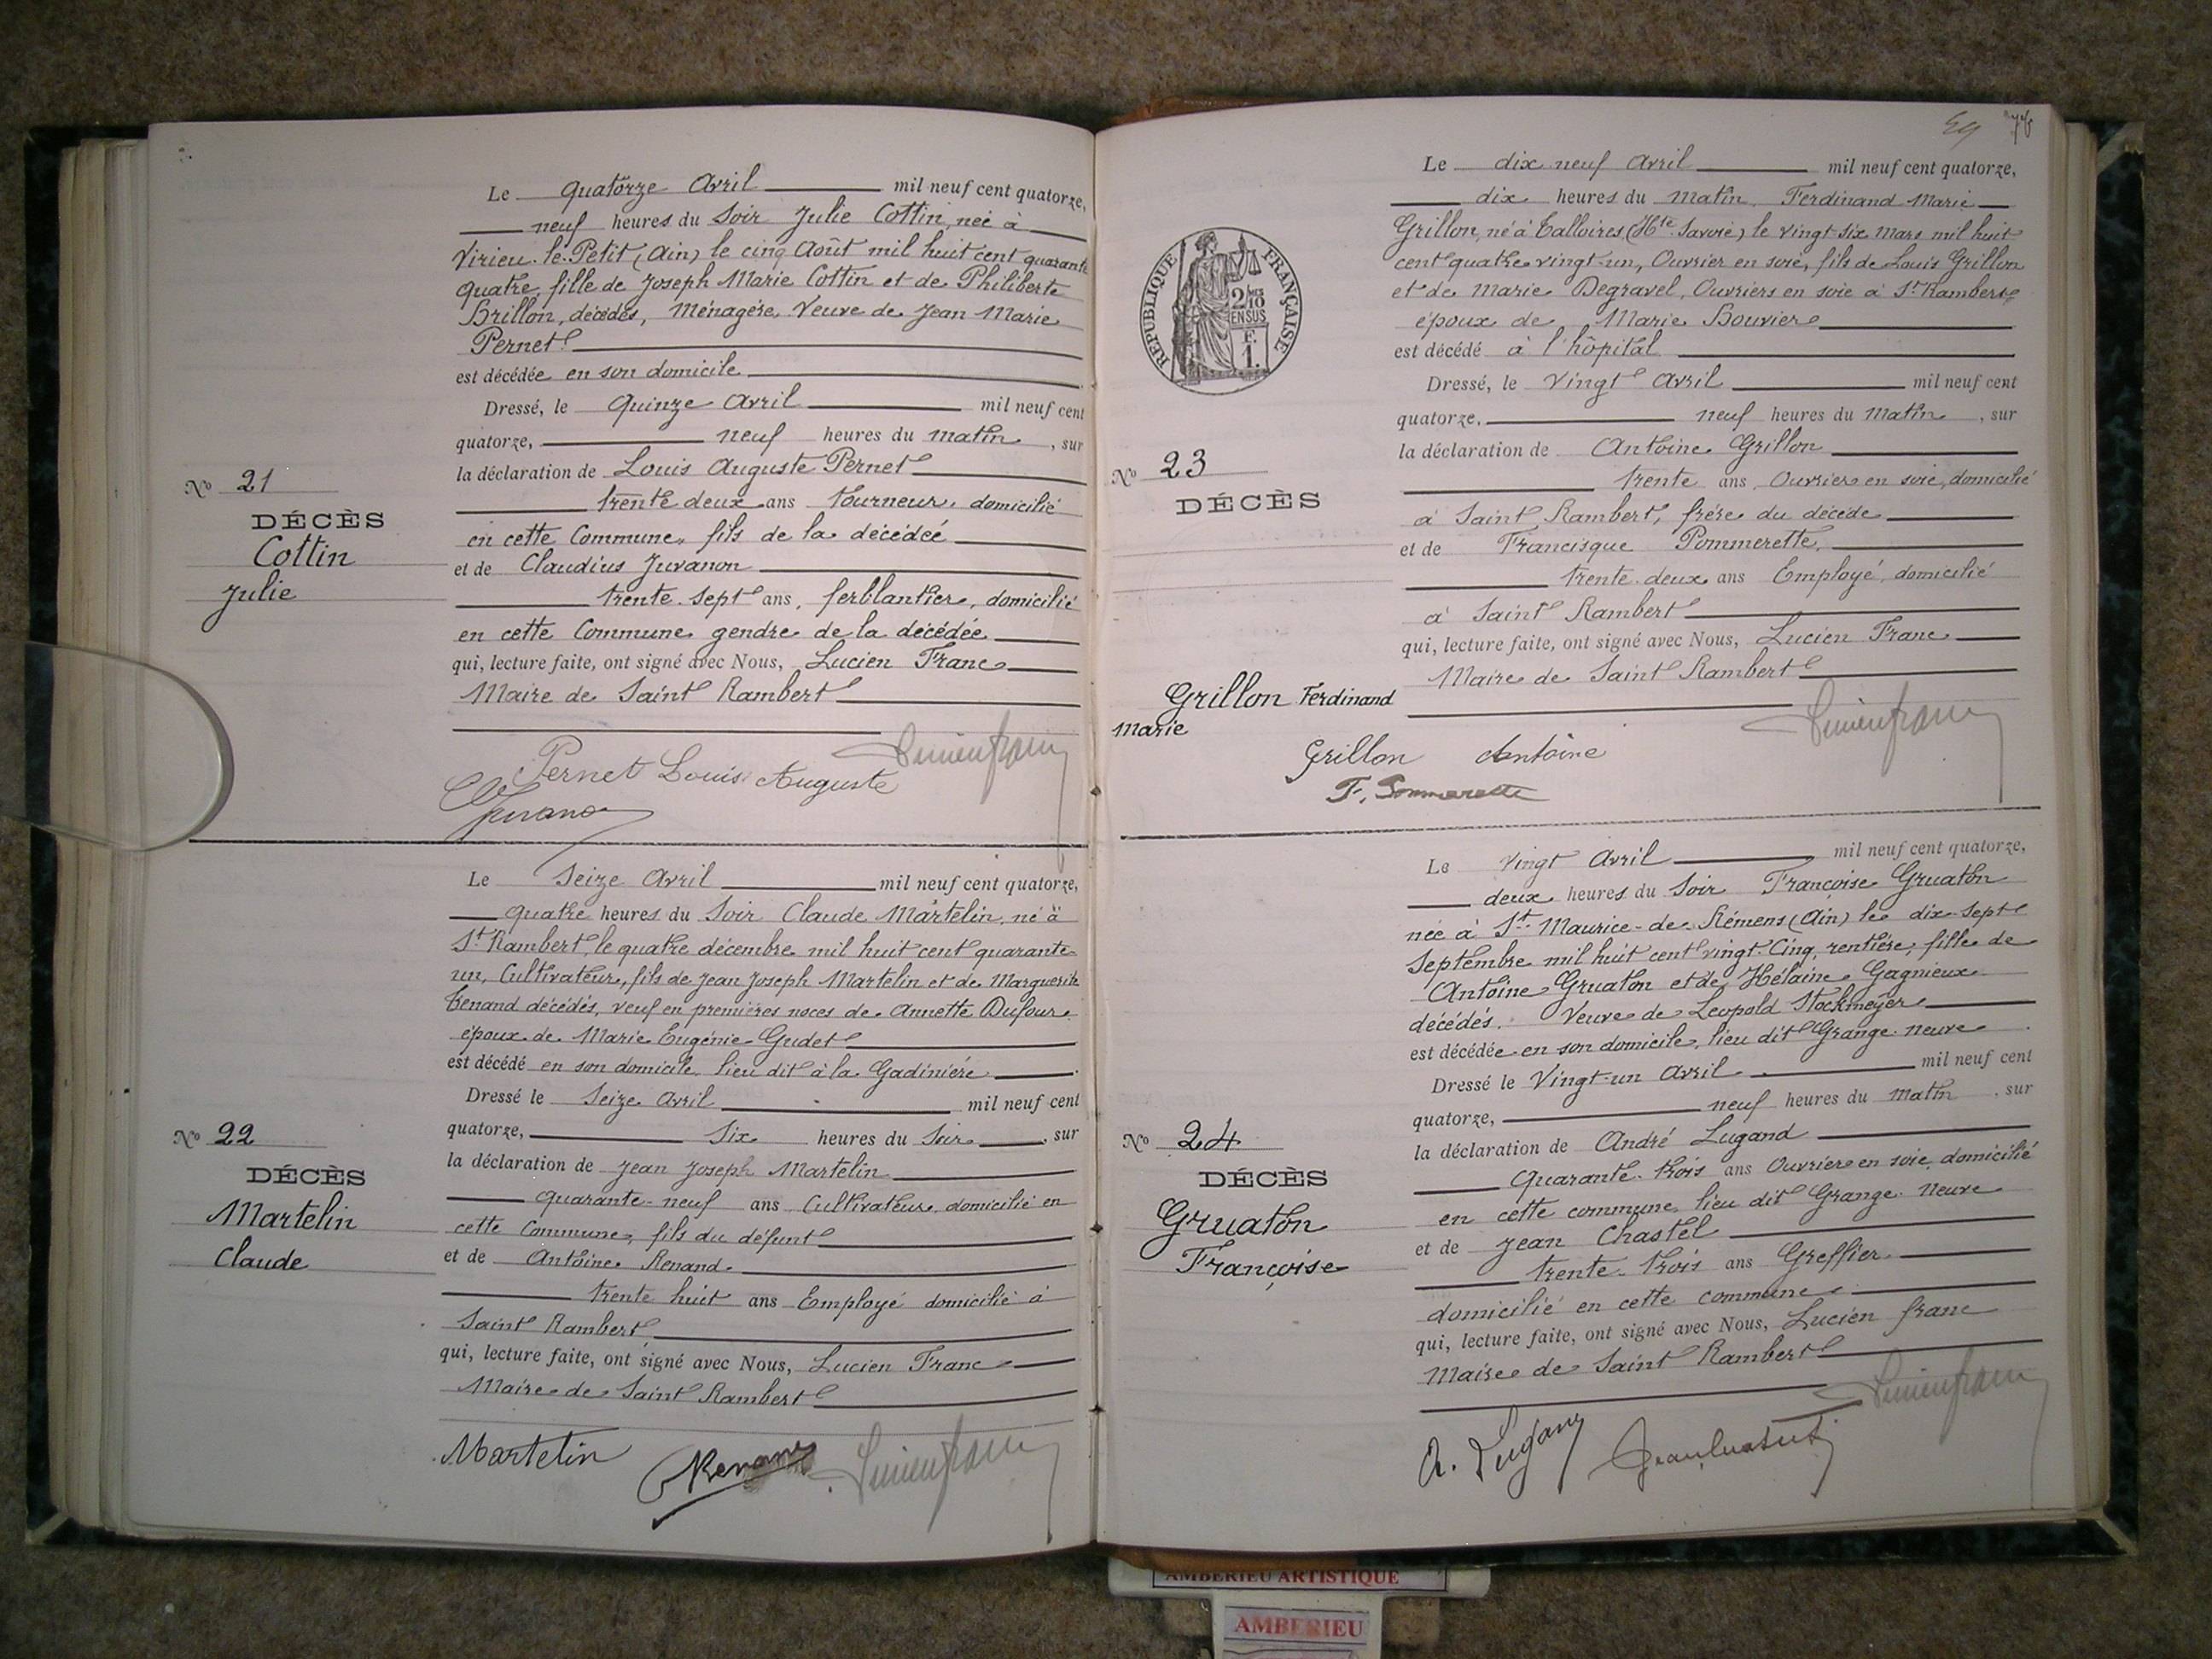 Le quatorze Avril mil neuf cent quatorze,
neuf heures du Soir Julie Cottin, née à
Virieu-le-Petit (Ain) le cinq Août mil huit cent quarante
quatre, fille de Joseph Marie Cottin et de Philiberte
Brillon, décédés, Ménagère, Veuve de Jean Marie
Pernet
est décédée en son domicile
Dressé, le Quinze Avril mil neuf cent
quatorze, neuf heures du matin, sur
la déclaration de Louis Auguste Pernet
trente deux ans tourneur, domicilié
en cette Commune, fils de la décédée
et de Claudius Juvanon
trente-sept ans, ferblantier, domicilié
en cette Commune gendre de la décédée
qui, lecture faite, ont signé avec Nous, Lucien Franc
Maire de Saint Rambert
Nº 21
DÉCÈS
Cottin
Julie
Pernet Louis Auguste
Le Seize Avril mil neuf cent quatorze,
quatre heures du Soir Claude Martelin, né à
St Rambert le quatre décembre mil huit cent quarante
un, Cultivateur, fils de Jean Joseph Martelin et de Marguerite
Tenand décédés, veuf en premières noces de Annette Dufour
époux de Marie Eugénie Gudet
est décédé en son domicile, lieu dit à la Gadinière
Dressé le Seize Avril mil neuf cent
quatorze, Six heures du Soir, sur
la déclaration de Jean Joseph Martelin
quarante-neuf ans Cultivateur domicilié en
cette Commune, fils du défunt
et de Antoine Renand
trente huit ans Employé domicilié à
Saint Rambert
qui, lecture faite, ont signé avec Nous, Lucien Franc
Maire de Saint Rambert
Nº 22
DÉCÈS
Martelin
Claude
Martelin Renand
59 76
Le dix-neuf Avril mil neuf cent quatorze,
dix heures du matin Ferdinand Marie
Grillon, né à Talloires (Hte Savoie) le vingt six Mars mil huit
cent quatre vingt-un, Ouvrier en soie, fils de Louis Grillon
et de Marie Degravel, Ouvriers en soie à St Rambert,
époux de Marie Bouvier
est décédé à l'hôpital
Dressé, le Vingt Avril mil neuf cent
quatorze, neuf heures du Matin, sur
la déclaration de Antoine Grillon
trente ans, Ouvrier en soie, domicilié
à Saint Rambert, frère du décédé
et de Francisque Pommerette,
trente-deux ans Employé, domicilié
à Saint Rambert
qui, lecture faite, ont signé avec Nous, Lucien Franc
Maire de Saint Rambert
RÉPUBLIQUE FRANÇAISE
2/10
EN SUS
F.
1.
Nº 23
DÉCÈS
Grillon Ferdinand
Marie
Grillon Antoine
F. Pommerette
Le Vingt Avril mil neuf cent quatorze,
deux heures du Soir Françoise Gruaton
née à St Maurice-de-Rémens (Ain) le dix-sept
Septembre mil huit cent vingt-Cinq, rentière, fille de
Antoine Gruaton et de Hélaine Gagnieux
décédés. Veuve de Leopold Stockmeyer
est décédée en son domicile, lieu dit Grange-neuve
Dressé le Vingt-un Avril mil neuf cent
quatorze, neuf heures du Matin, sur
la déclaration de André Lugand
Quarante-trois ans Ouvrier en soie, domicilié
en cette commune, lieu dit Grange-neuve
et de Jean Chastel
trente-trois ans Greffier
domicilié en cette commune
qui, lecture faite, ont signé avec Nous, Lucien franc
Maire de Saint Rambert
Nº 24
DÉCÈS
Gruaton
Françoise
A. Lugand
AMBERIEU ARTISTIQUE
AMBERIEU